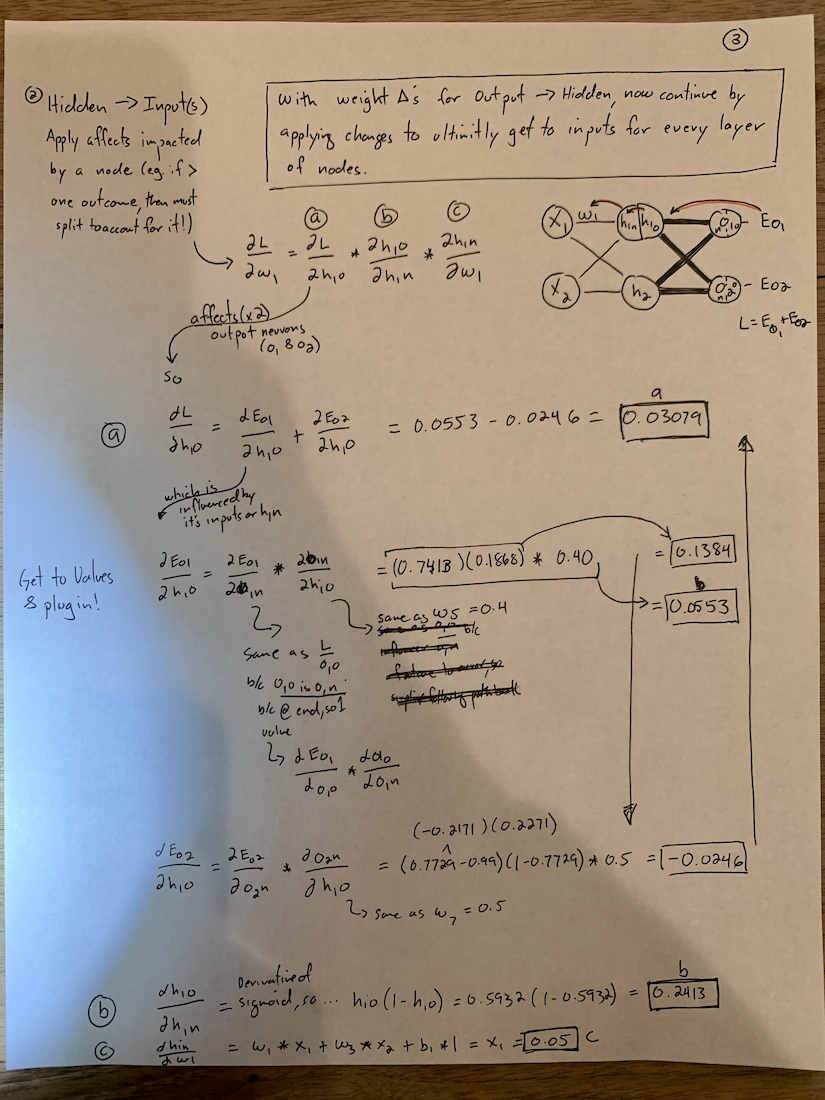 ③
② Hidden → Input(s)
Apply affects impacted
by a node (eg. if >
one outcome, then must
split to account for it!)
With weight Δ's for Output → Hidden, now continue by
applying changes to ultimitly get to inputs for every layer
of nodes.
ⓐ ⓑ ⓒ
∂L/∂w₁ = ∂L/∂h₁o * ∂h₁o/∂h₁n * ∂h₁n/∂w₁
X₁ w₁ h₁n h₁o Eo₁
X₂ h₂ Eo₂
L = Eo₁ + Eo₂
affects (x2)
output neurons
(o₁ & o₂)
so
a
ⓐ ∂L/∂h₁o = ∂Eo1/∂h₁o + ∂Eo2/∂h₁o = 0.0553 - 0.0246 = 0.03079
which is
influenced by
it's inputs or h₁n
Get to Values
& plugin!
∂Eo1/∂h₁o = ∂Eo1/∂o₁n * ∂o₁n/∂h₁o = (0.7413)(0.1868) * 0.40 = 0.1384
b
= 0.0553
same as w5 = 0.4
b/c
same as L/o₁o
b/c o₁o is o₁n
b/c @ end, so 1
value
∂Eo₁/∂o₁o * ∂o₁o/∂o₁n
(-0.2171)(0.2271)
∂Eo2/∂h₁o = ∂Eo2/∂o₂n * ∂o₂n/∂h₁o = (0.7729-0.99)(1-0.7729) * 0.5 = -0.0246
same as w₇ = 0.5
b
ⓑ ∂h₁o/∂h₁n = Derivative of sigmoid, so... h₁o(1-h₁o) = 0.5932(1-0.5932) = 0.2413
ⓒ ∂h₁n/∂w₁ = w₁ * x₁ + w₃ * x₂ + b₁ * 1 = x₁ = 0.05 C